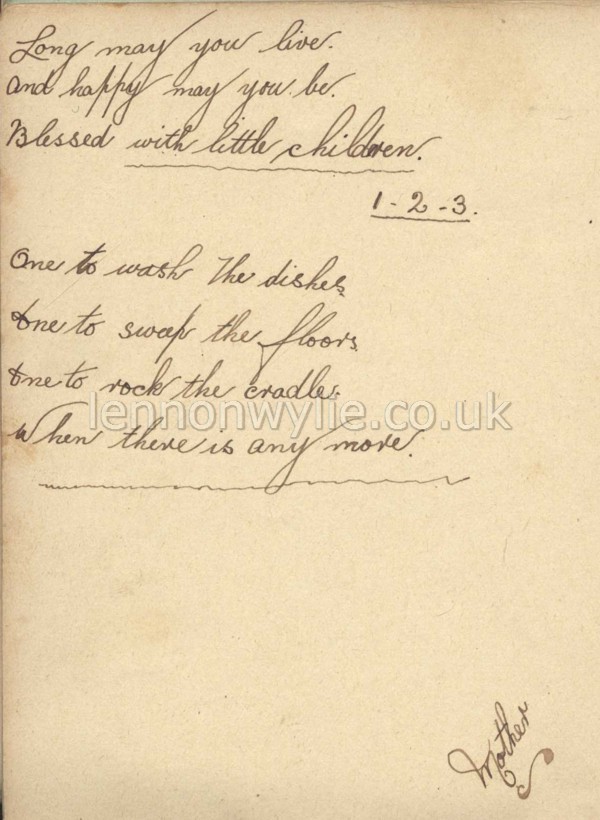 Long may you live.
and happy may you be.
Blessed with little children.
1 - 2 - 3.
One to wash the dishes.
One to sweep the floors.
One to rock the cradle.
When there is any more.
lennonwylie.co.uk
Mother